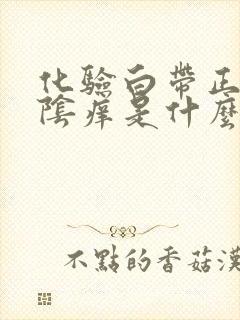 化驗白帶正
陰痒是什麼
不點的香菇漢